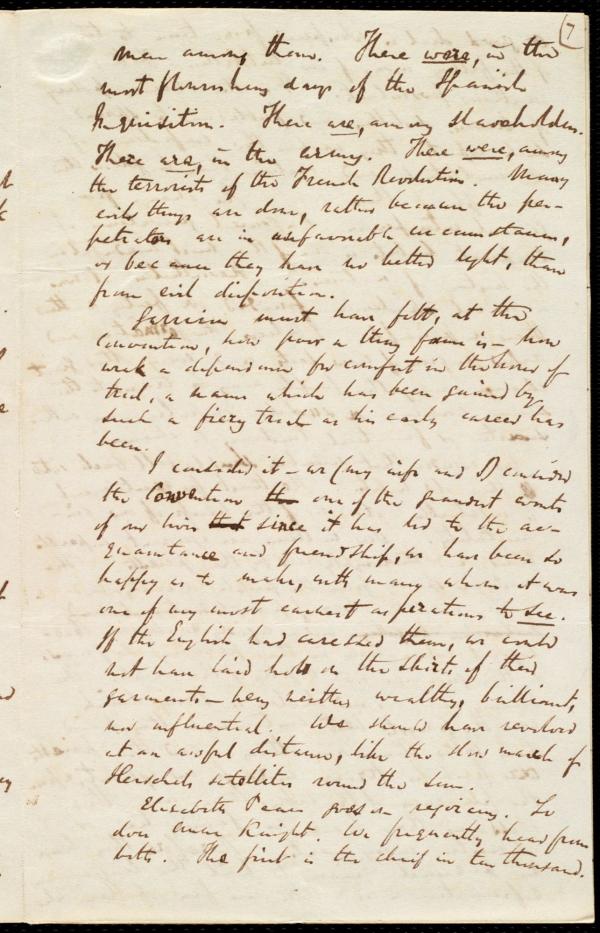 7
men among them. There were, in the
most flourishing days of the Spanish
Inquisition. There are, among slaveholders.
There are, in the army. There were, among
the terrorists of the French Revolution. Many
evil things are done, rather because the per-
petrators are in unfavorable circumstances,
or because they have no better light, than
from evil disposition.
Garrison must have felt, at the
Convention, how poor a thing fame is - how
weak a dependence for comfort in the hour of
trial, a name which has been gained by
such a fiery trial as his early career has
been.
I consider it - we (my wife and I) consider
the Convention the one of the grandest events
of our lives that since it has led to the ac-
quaintance and friendship, we have been so
happy as to make, with many whom it was
one of my most earnest aspirations to see.
If the English had caressed them, we could
not have laid hold on the skirts of their
garments - being neither wealthy, brilliant,
nor influential. We should have revolved
at an awful distance, like the slow march of
Herschel's satellites round the Sun.
Elizabeth Pease goes on rejoicing. So
does Anne Knight. We frequently hear from
both. The first is the chief in ten thousand.